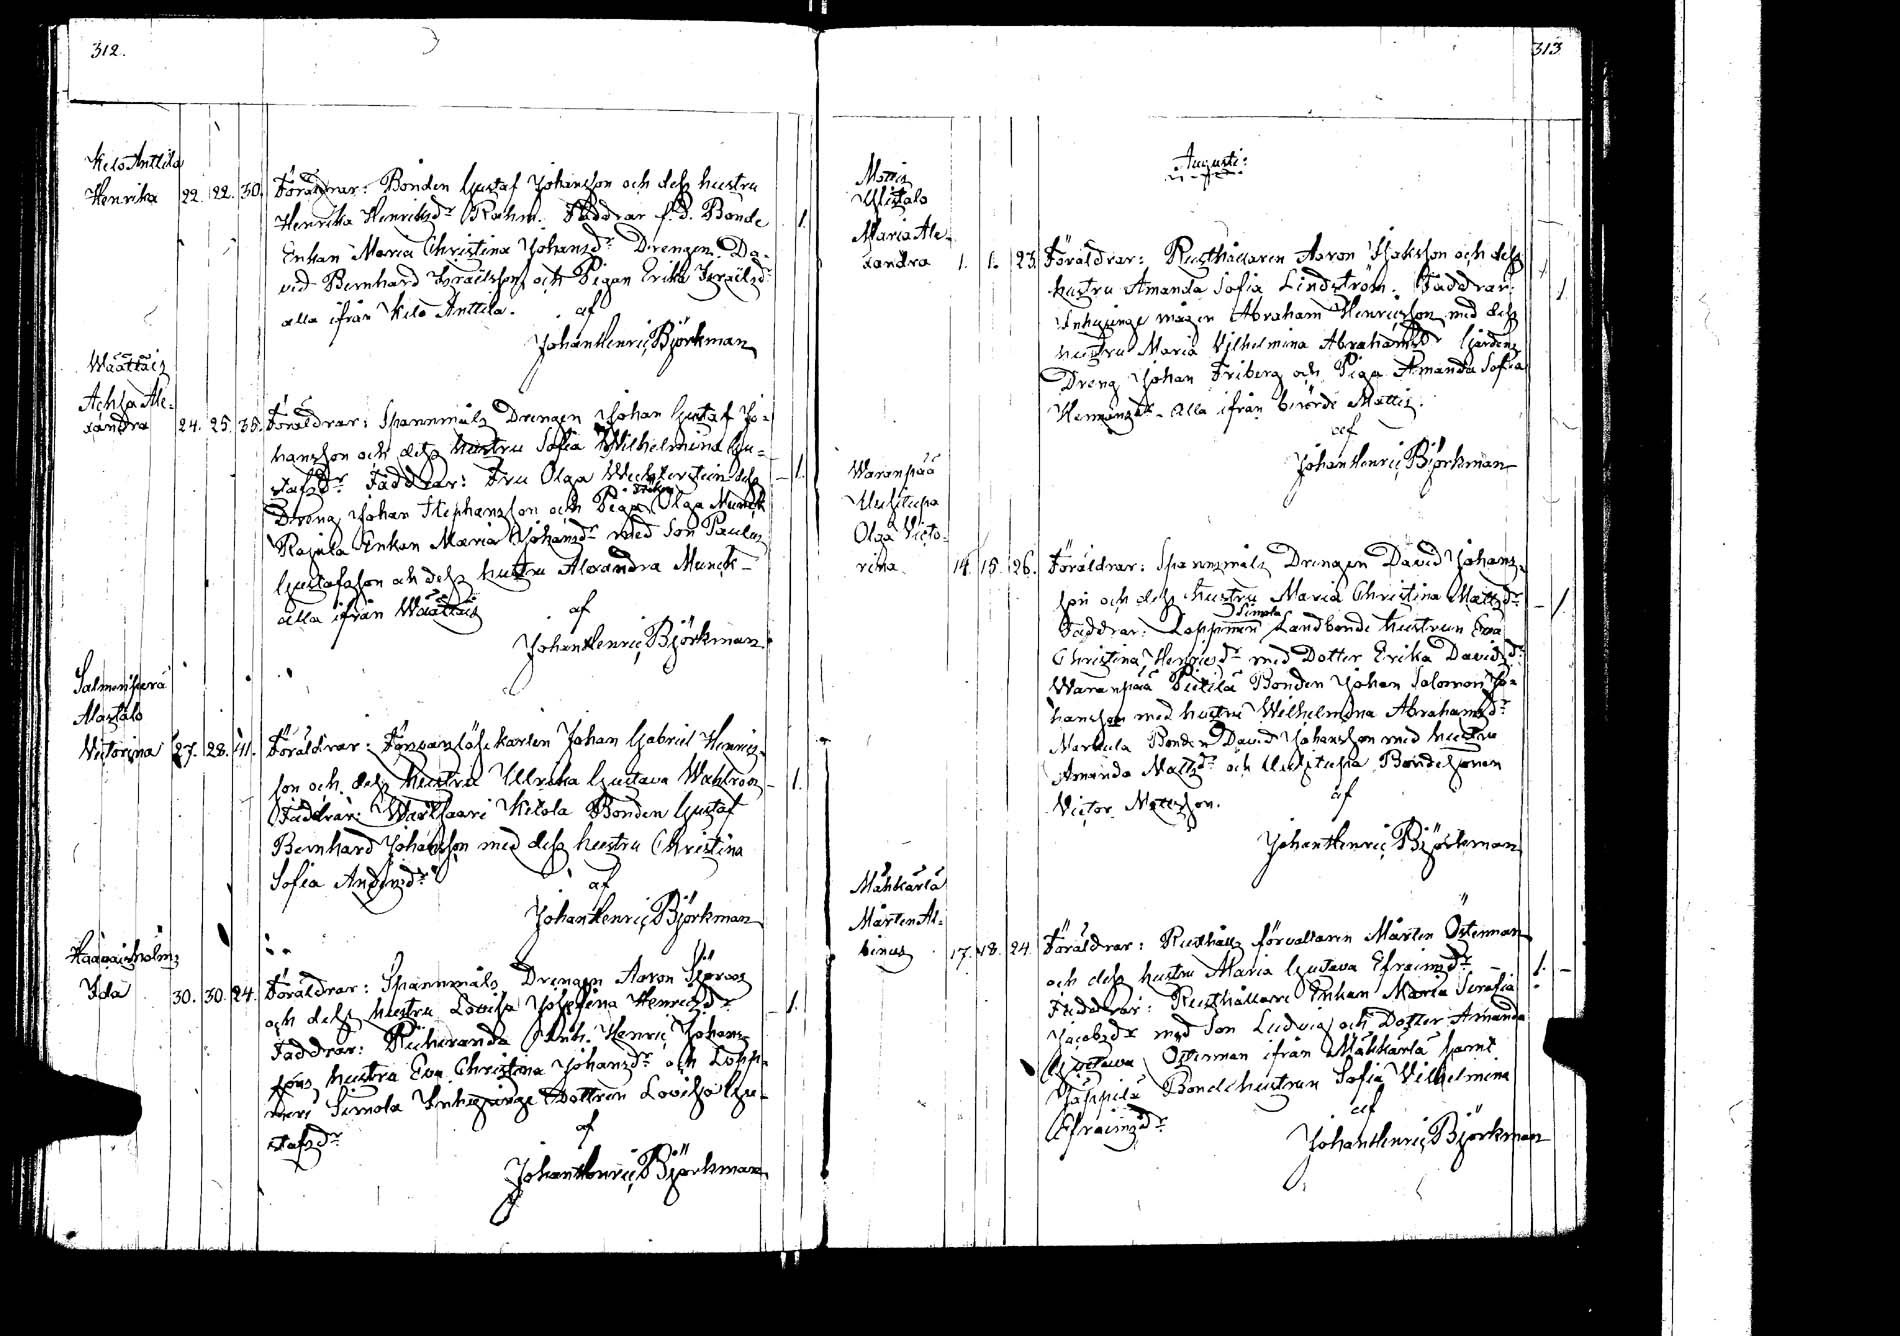 312.
Kilo Anttila
Henrika 22. 22. 30. Föräldrar: Bonden Gustaf Johansson och dess hustru
Henrika Henriksdr Rahm. Faddrar f.d. Bonde
Enkan Maria Christina Johansdr Drengen Da-
vid Bernhard Israelsson och Pigan Erika Israelsdr
alla ifrån Kilo Anttila. af
Johan Henric Björkman
1.
Wäättäis
Achsa Ale-
xandra 24. 25. 35. Föräldrar: Spannmåls Drengen Johan Gustaf Jo-
hansson och dess hustru Sofia Wilhelmina Gu-
stafsdr Faddrar: Fru Olga dess
Dreng Johan Stephansson och Piga Olga Munck
Enkan Maria Johansdr med Son Paulus
Gustafsson och dess hustru Alexandra Munck
alla ifrån Wäättäis af
Johan Henric Björkman
1.
Salmenperä
Alastalo
Victorina 27. 28. 41. Föräldrar: Johan Gabriel Henrics-
son och dess hustru Ulrika Gustava Wahlroos
Faddrar: Kitola Bonden Gustaf
Bernhard Johansson med dess hustru Christina
Sofia Andersdr af
Johan Henric Björkman
1.
Haavaisholm
Ida 30. 30. 24. Föräldrar: Spannmåls Drengen Aaron Sjöroos
och dess hustru Lovisa Josefina Henricsdr
Faddrar: Riihiranda Inh. Henric Johans-
sons hustru Eva Christina Johansdr och Lopp-
meri Simola Inhysinge Dottren Lovisa Gu-
stafsdr af
Johan Henric Björkman
1.
313
Augusti:
Mattis
Ylistalo
Maria Ale-
xandra 1. 1. 23. Föräldrar: Rusthållaren Aaron Isaksson och dess
hustru Amanda Sofia Lindström. Faddrar:
Inhysinge mågen Abraham Henricsson med dess
hustru Maria Vilhelmina Abrahamsdr Gårdens
Dreng Johan Friberg och Piga Amanda Sofia
Hermansdr. alla ifrån berörde Mattis.
af
Johan Henric Björkman
1
Waranpää
Uusitupa
Olga Victo-
rina. 14. 15. 26. Föräldrar: Spannmåls Drengen David Johans-
son och dess hustru Maria Christina Mattsdr
Simola
Faddrar: Landbonde hustrun Eva
Christina Henricsdr med Dotter Erika Davidsdr
Waranpää Pietilä Bonden Johan Salomon Jo-
hansson med hustru Wilhelmina Abrahamsdr
Markula Bonden David Johansson med hustru
Amanda Mattsdr och Uusitupa Bondesonen
Victor Mattsson. af
Johan Henric Björkman
1
Mähkärlä
Mårten Al-
binus 17. 18. 24. Föräldrar: Rusthålls förvaltaren Mårten Österman
och dess hustru Maria Gustava Efraimsdr
Faddrar: Rusthållare Enkan Maria Serafia
Jacobsdr med Son Ludvig och Dotter Amanda
Gustava Österman ifrån Mähkärlä samt
Jäppilä Bondehustrun Sofia Vilhelmina
Efraimsdr af
Johan Henric Björkman
1.